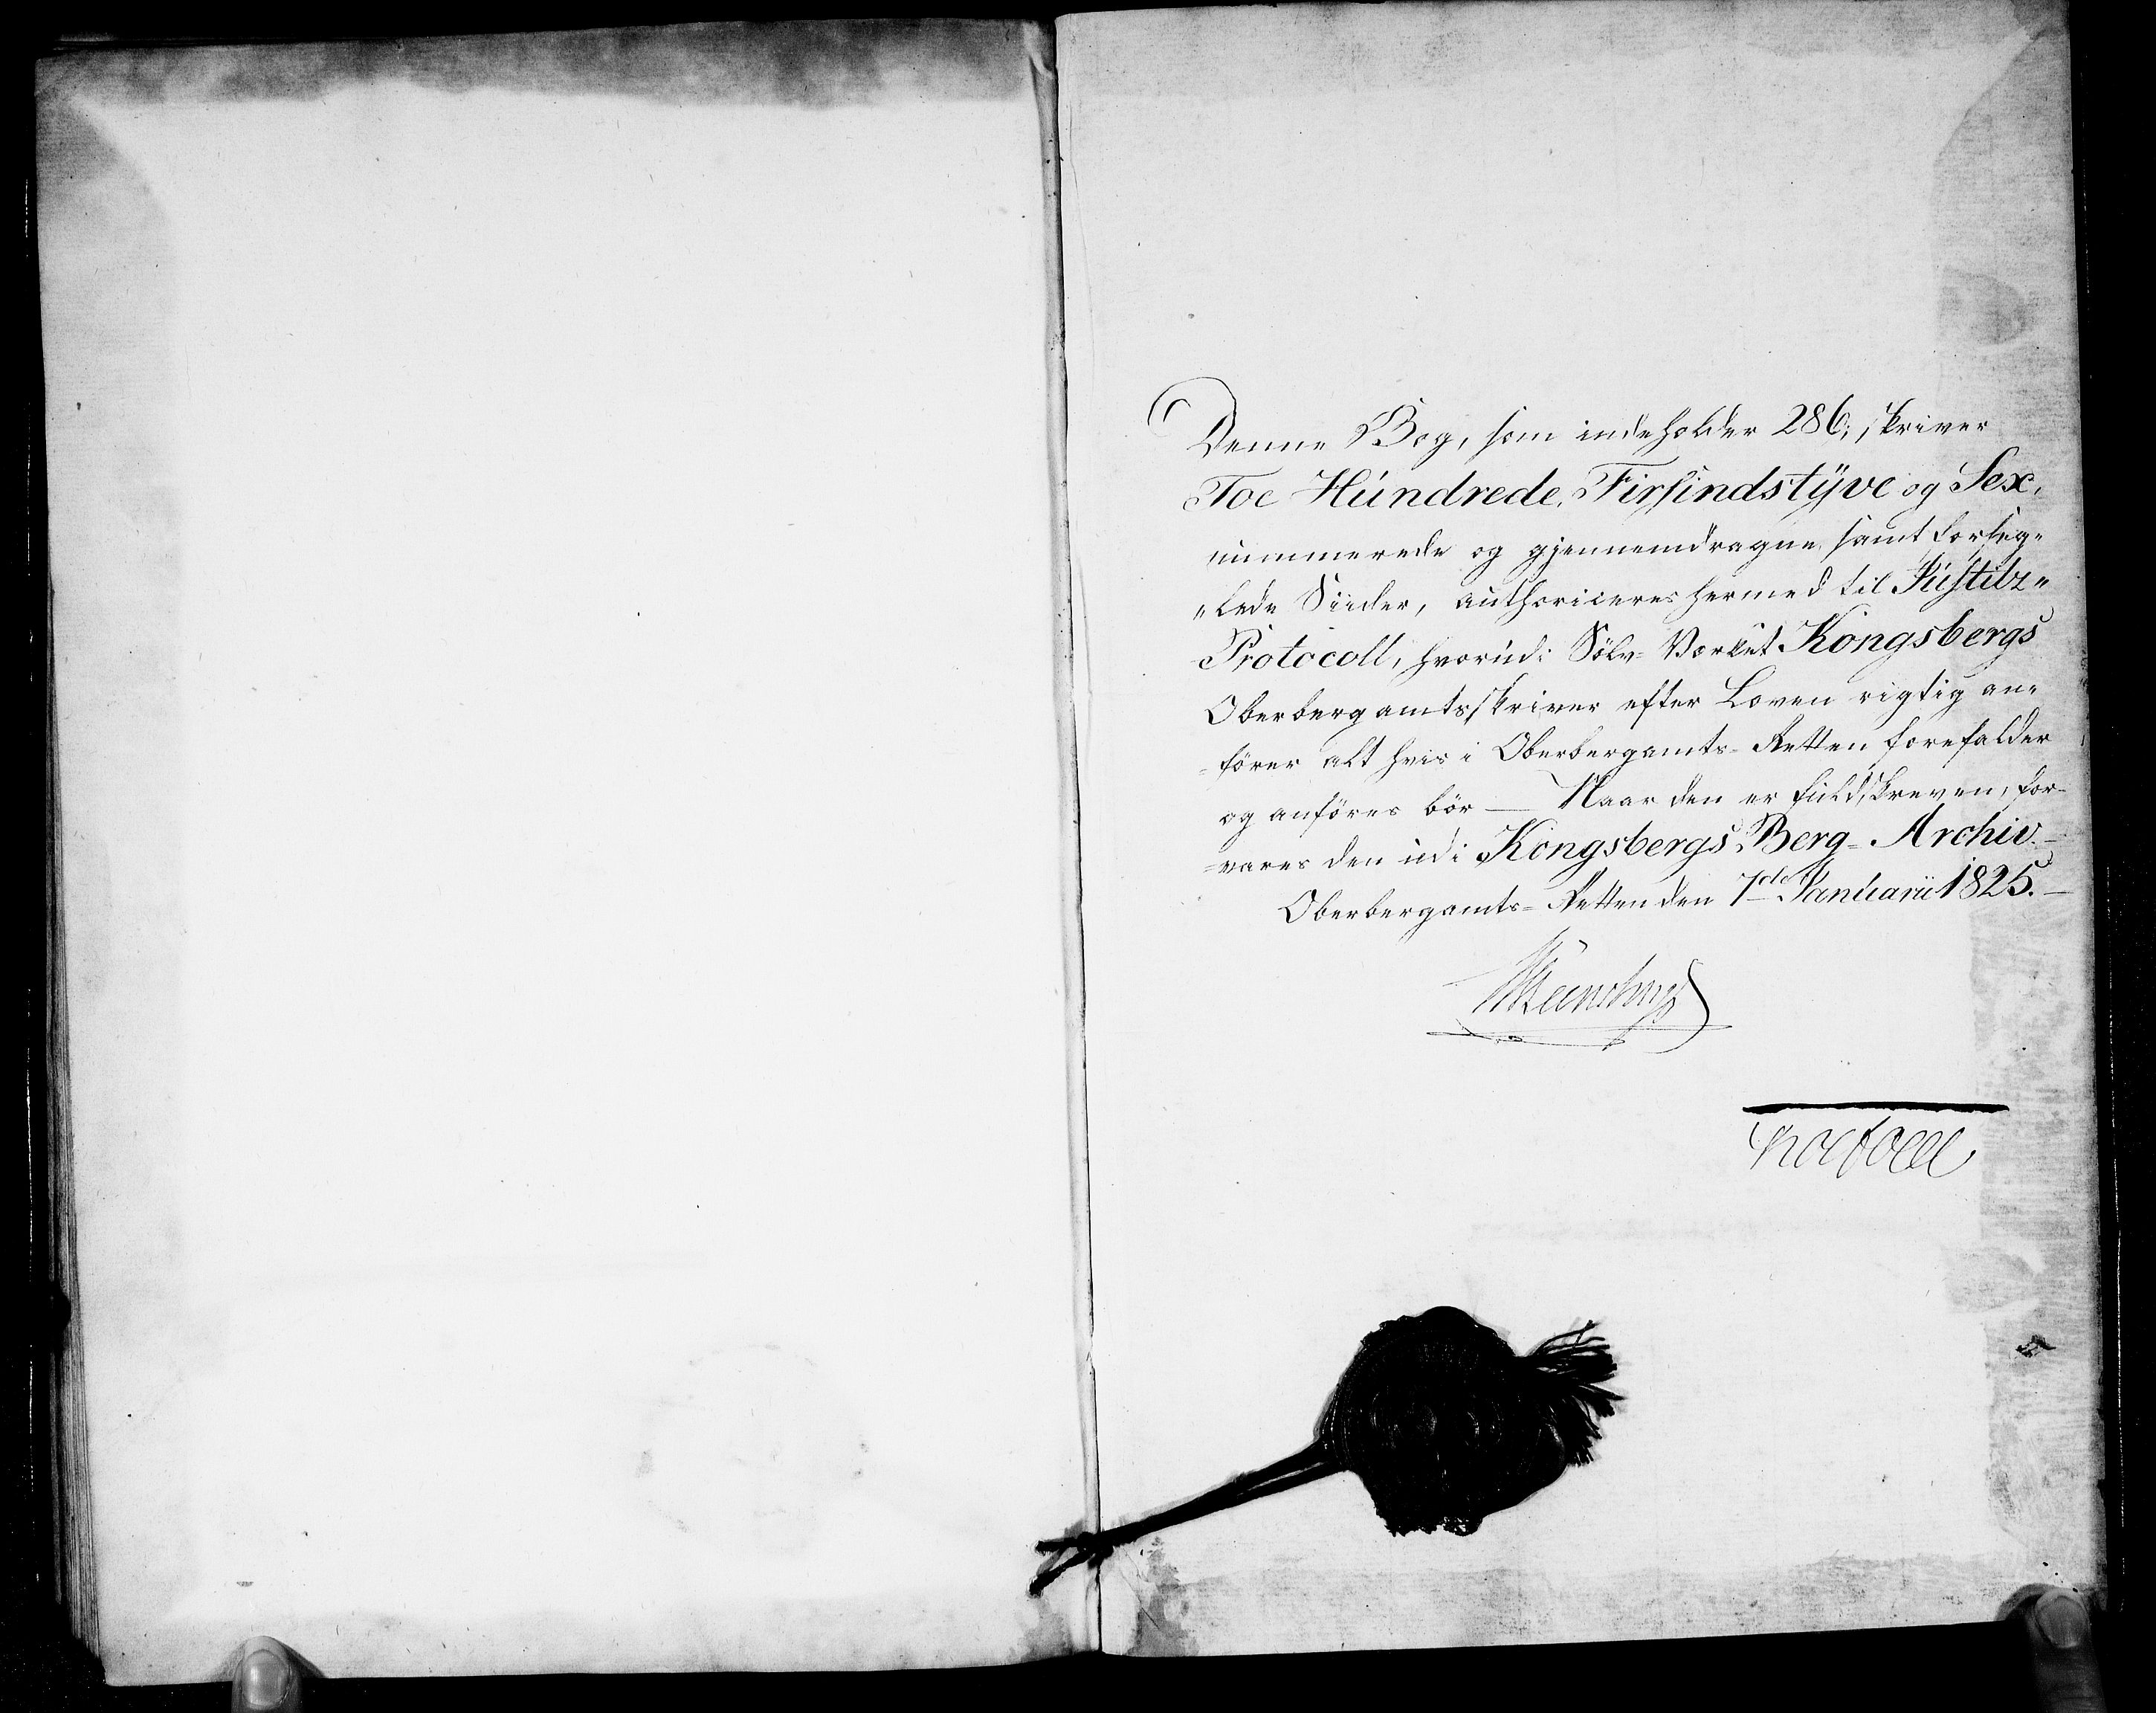 Denne Bog, som indeholder 286, skriver
Toe Hundrede, Firsindstyve og Sex,
nummerede og gjennemdragne samt forseg„
„lede Siider, authoriceres hermed til Justitz„
Protocoll, hvorudi Sölv-Værket Kongsbergs
Oberbergamtsskriver efter Loven rigtig an„
förer alt hvis i Oberbergamts-Retten forefalder
og anföres bör — Naar den er fuldskreven, for-
=vares den udi Kongsbergs Berg-Archiv.—
Oberbergamts-Retten den 7de Januarii 1825.—